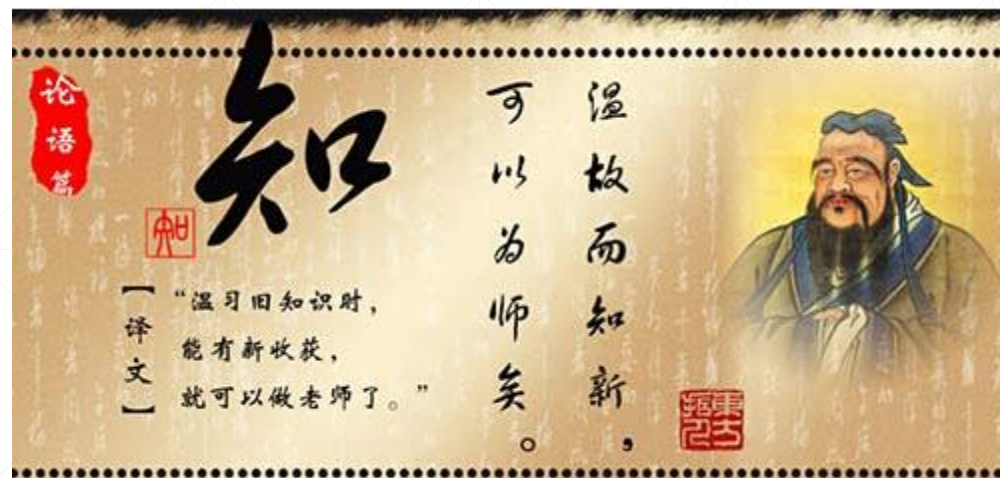 论语篇
知
知
温故而知新，
可以为师矣。
【译文】
“温习旧知识时，
能有新收获，
就可以做老师了。”